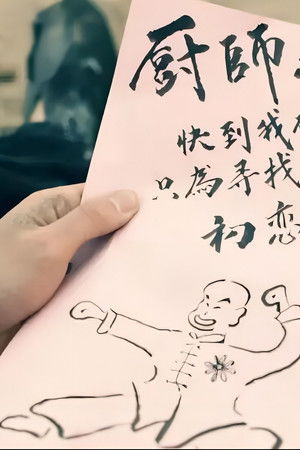 厨師
快到我
只為尋找
初戀